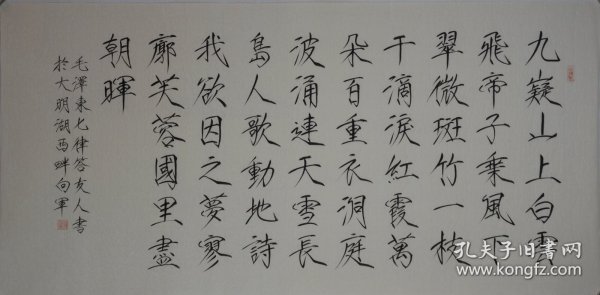 九嶷山上白雲
飛帝子乘風下
翠微斑竹一枝
千滴淚紅霞萬
朵百重衣洞庭
波涌連天雪長
島人歌動地詩
我欲因之夢寥
廓芙蓉國里盡
朝暉
毛澤東七律答友人書
於大明湖西畔向軍
孔夫子旧书网
www.kongfz.com